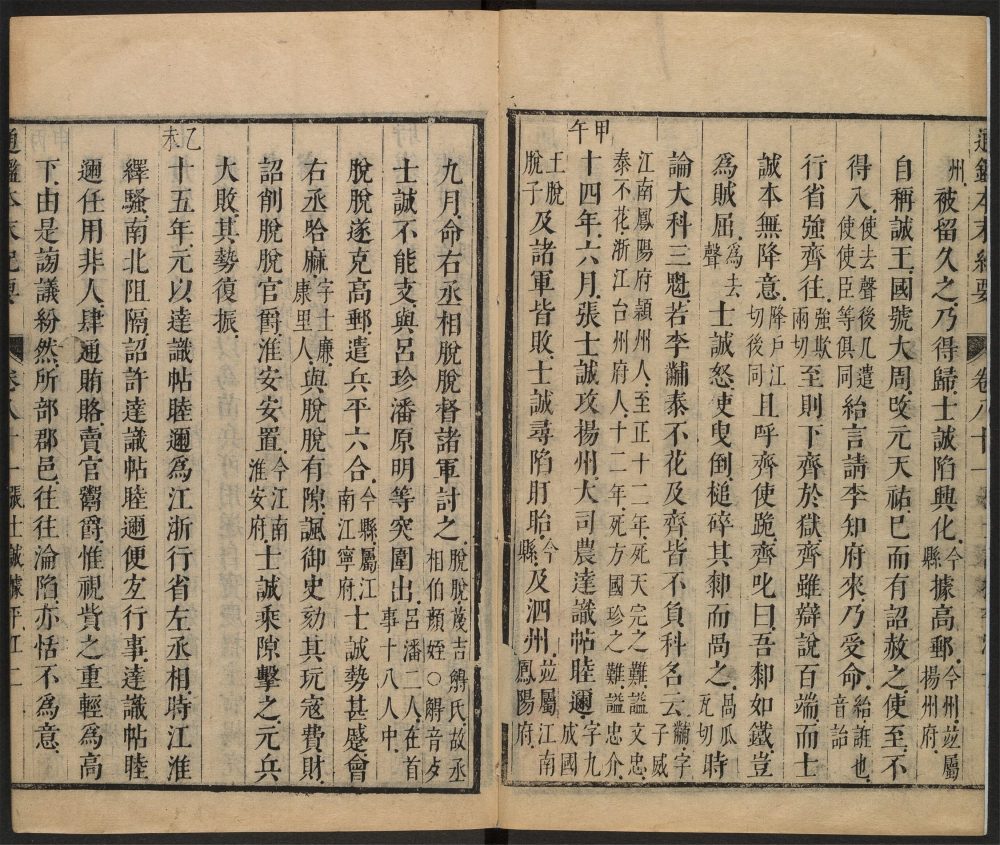 通鑑本末紀要 卷八十一
州.被留久之.乃得歸.士誠陷興化.今縣.據高郵.今州.竝屬揚州府.
自稱誠王.國號大周.攺元天祐.巳而有詔赦之.使至.不
得入.使去聲後凡遣使使臣等俱同紿言請李知府來乃受命.紿誑也.音詒
行省強齊往.強欺兩切至則下齊於獄.齊雖辯說百端.而士
誠本無降意.降戶江切後同且呼齊使跪.齊叱曰.吾厀如鐵.豈
為賊屈.為去聲士誠怒.使曳倒.槌碎其厀而咼之.咼瓜瓦切時
論大科三魁.若李黼泰不花及齊.皆不負科名云.黼字子威
江南鳳陽府潁州人.至正十二年.死天完之難.諡文忠.
泰不花.浙江台州府人.十二年.死方國珍之難.諡忠介.
甲午
十四年.六月.張士誠攻揚州.大司農達識帖睦邇.字九成國
王脫脫子及諸軍皆敗.士誠尋陷盱眙.今縣.及泗州.竝屬江南鳳陽府.
九月.命右丞相脫脫督諸軍討之.脫脫蔑吉䚟氏.故丞相伯顏姪○䚟音歹
士誠不能支.與呂珍潘原明等突圍出.呂潘二人.在首事十八人中.
脫脫遂克高郵.遣兵.平六合.今縣屬江南江寧府.士誠勢甚蹙.會
右丞哈麻.字士廉.康里人.與脫脫有隙.諷御史劾其玩寇費財.
詔削脫脫官爵.淮安安置.今江南淮安府.士誠乘隙擊之.元兵
大敗.其勢復振.
乙未
十五年.元以達識帖睦邇為江浙行省左丞相.時江淮
繹騷.南北阻隔.詔許達識帖睦邇便宐行事.達識帖睦
邇任用非人.肆通賄賂.賣官鬻爵.惟視貲之重輕為高
下.由是謗議紛然.所部郡邑.往往淪陷.亦恬不為意.
通鑑本末紀要 卷八十一 張士誠據平江 二